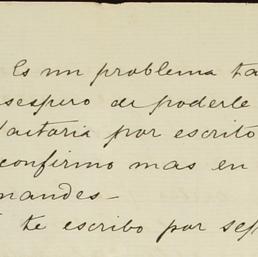 Es un problema ta
sespero de poderle
factoria por escrito
confirmo mas en
nandes-
te escribo por sep